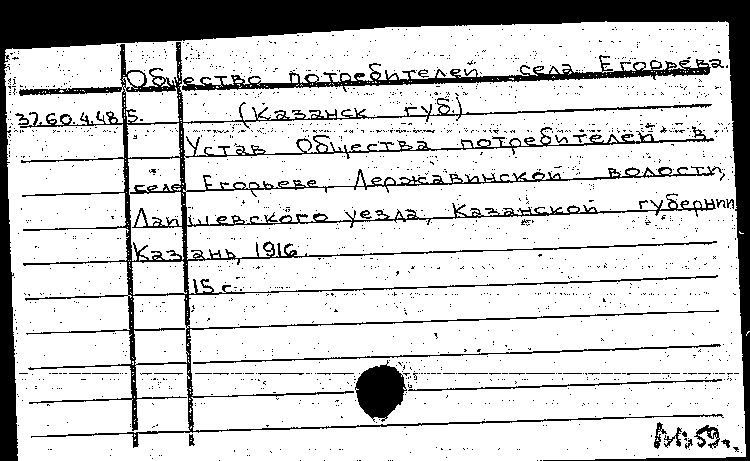 Общество потребителей села Егорьева
37.60.4.48 5. (Казанск губ.)
Устав Общества потребителей в
селе Егорьеве, Державинской волости,
Лаишевского уезда, Казанской губернии
Казань, 1916.
15 с.
59 г.